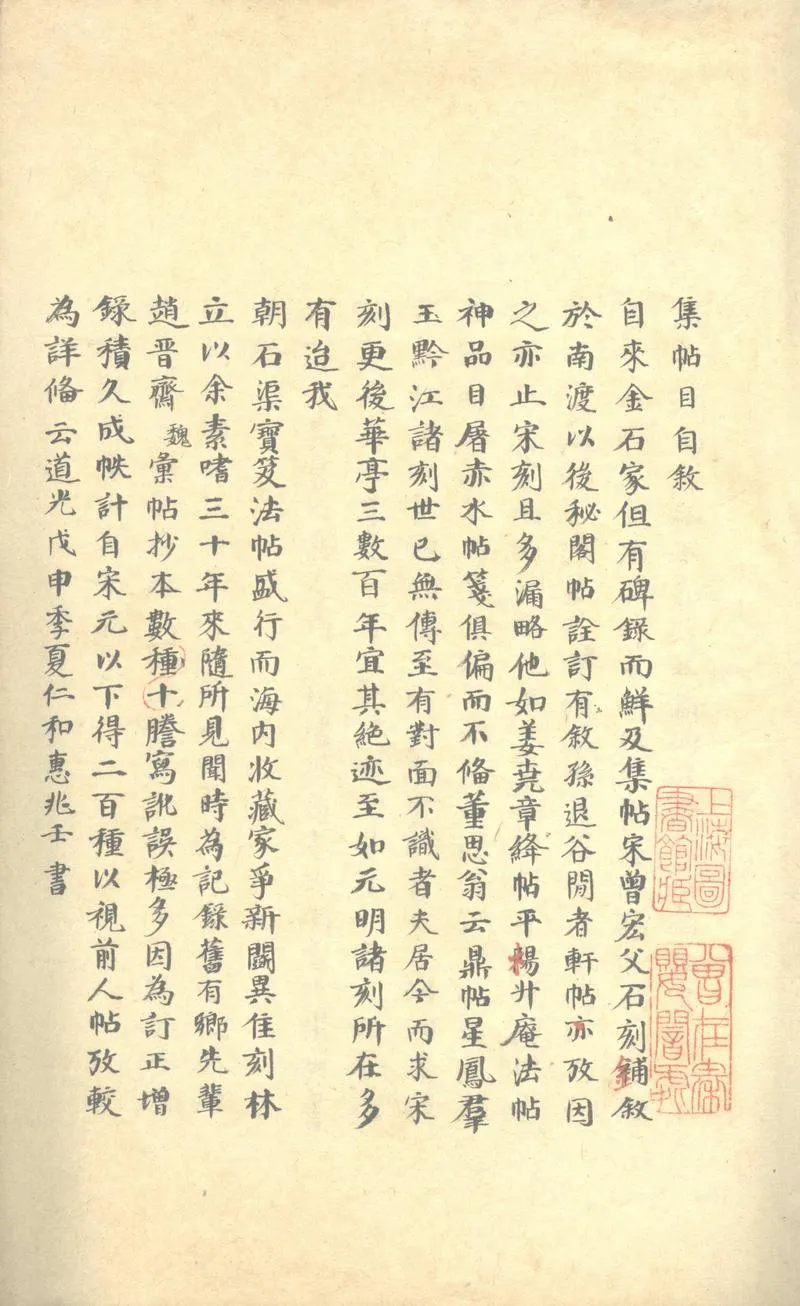 集帖目自敘
自來金石家但有碑錄而鮮及集帖宋曾宏父石刻鋪敘
於南渡以後秘閣帖詮訂有敘孫退谷閒者軒帖亦攷因
之亦止宋刻且多漏略他如姜堯章絳帖平楊升庵法帖
神品目屠赤水帖箋俱偏而不偹董思翁云鼎帖星鳳羣
玉黔江諸刻世已無傳至有對面不識者夫居今而求宋
刻更後華亭三數百年宜其絕迹至如元明諸刻所在多
有迨我
朝石渠寶笈法帖盛行而海內收藏家爭新鬭異隹刻林
立以余素嗜三十年來隨所見聞時為記錄舊有鄉先輩
趙晋齋魏彙帖抄本數種十謄寫訛誤極多因為訂正增
錄積久成帙計自宋元以下得二百種以視前人帖攷較
為詳偹云道光戊申季夏仁和惠兆壬書
上海圖
書館臧
曾在